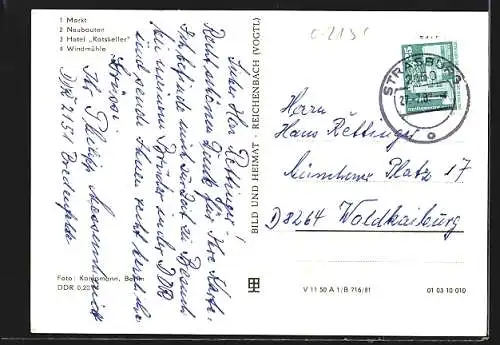 1 Markt
2 Neubauten
3 Hotel „Ratskeller“
4 Windmühle
Lieber Herr Rettinger!
Recht schönen Dank für Ihre Karte.
Ich befinde mich zur Zeit zu Besuch
bei meinem Bruder in der DDR
und sende Ihnen recht herzliche
Grüße
Ihr Philipp
DDR 2151 Bredenfelde
Foto: Kampmann, Berlin
DDR 0,20
BILD UND HEIMAT · REICHENBACH (VOGTL)
V 11 50 A 1/B 716/81
01 03 10 010
STRASBURG
Herrn
Hans Rettinger
Münchener Platz 17
D8264 Waldkraiburg